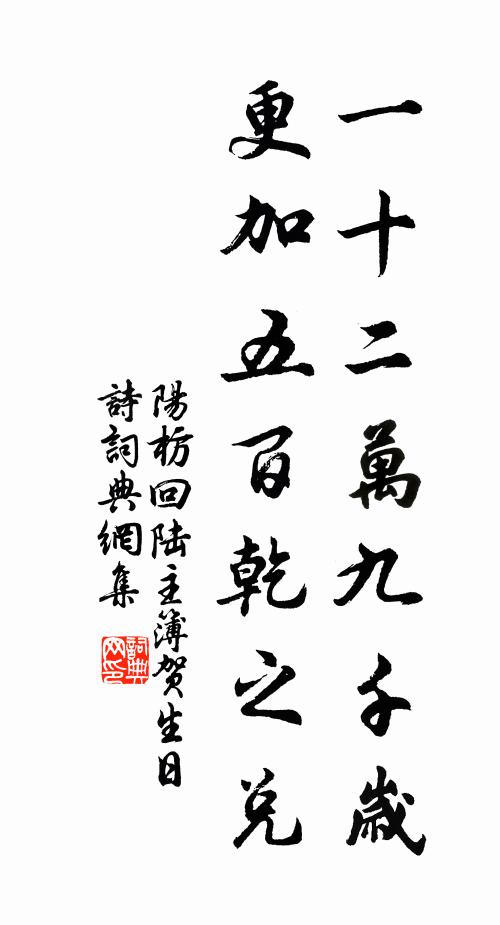 一十二萬九千歲
更加五百乾之兑
陽枋回陸主簿贺生日
詩詞典網集
詞典
网印